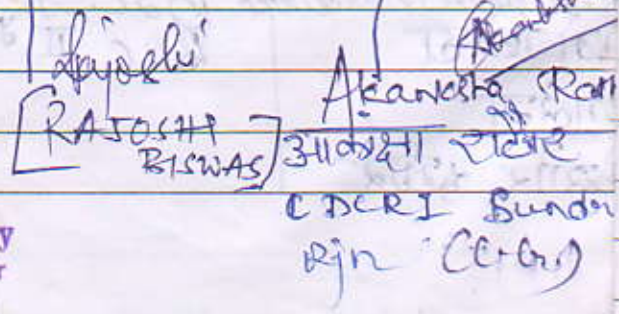 Rajoshi
[RAJOSHI
BISWAS]
Akanksha (Rat
आकांक्षा राठौर
CDCRI Sundr
Rjn (C.G.)
y
r